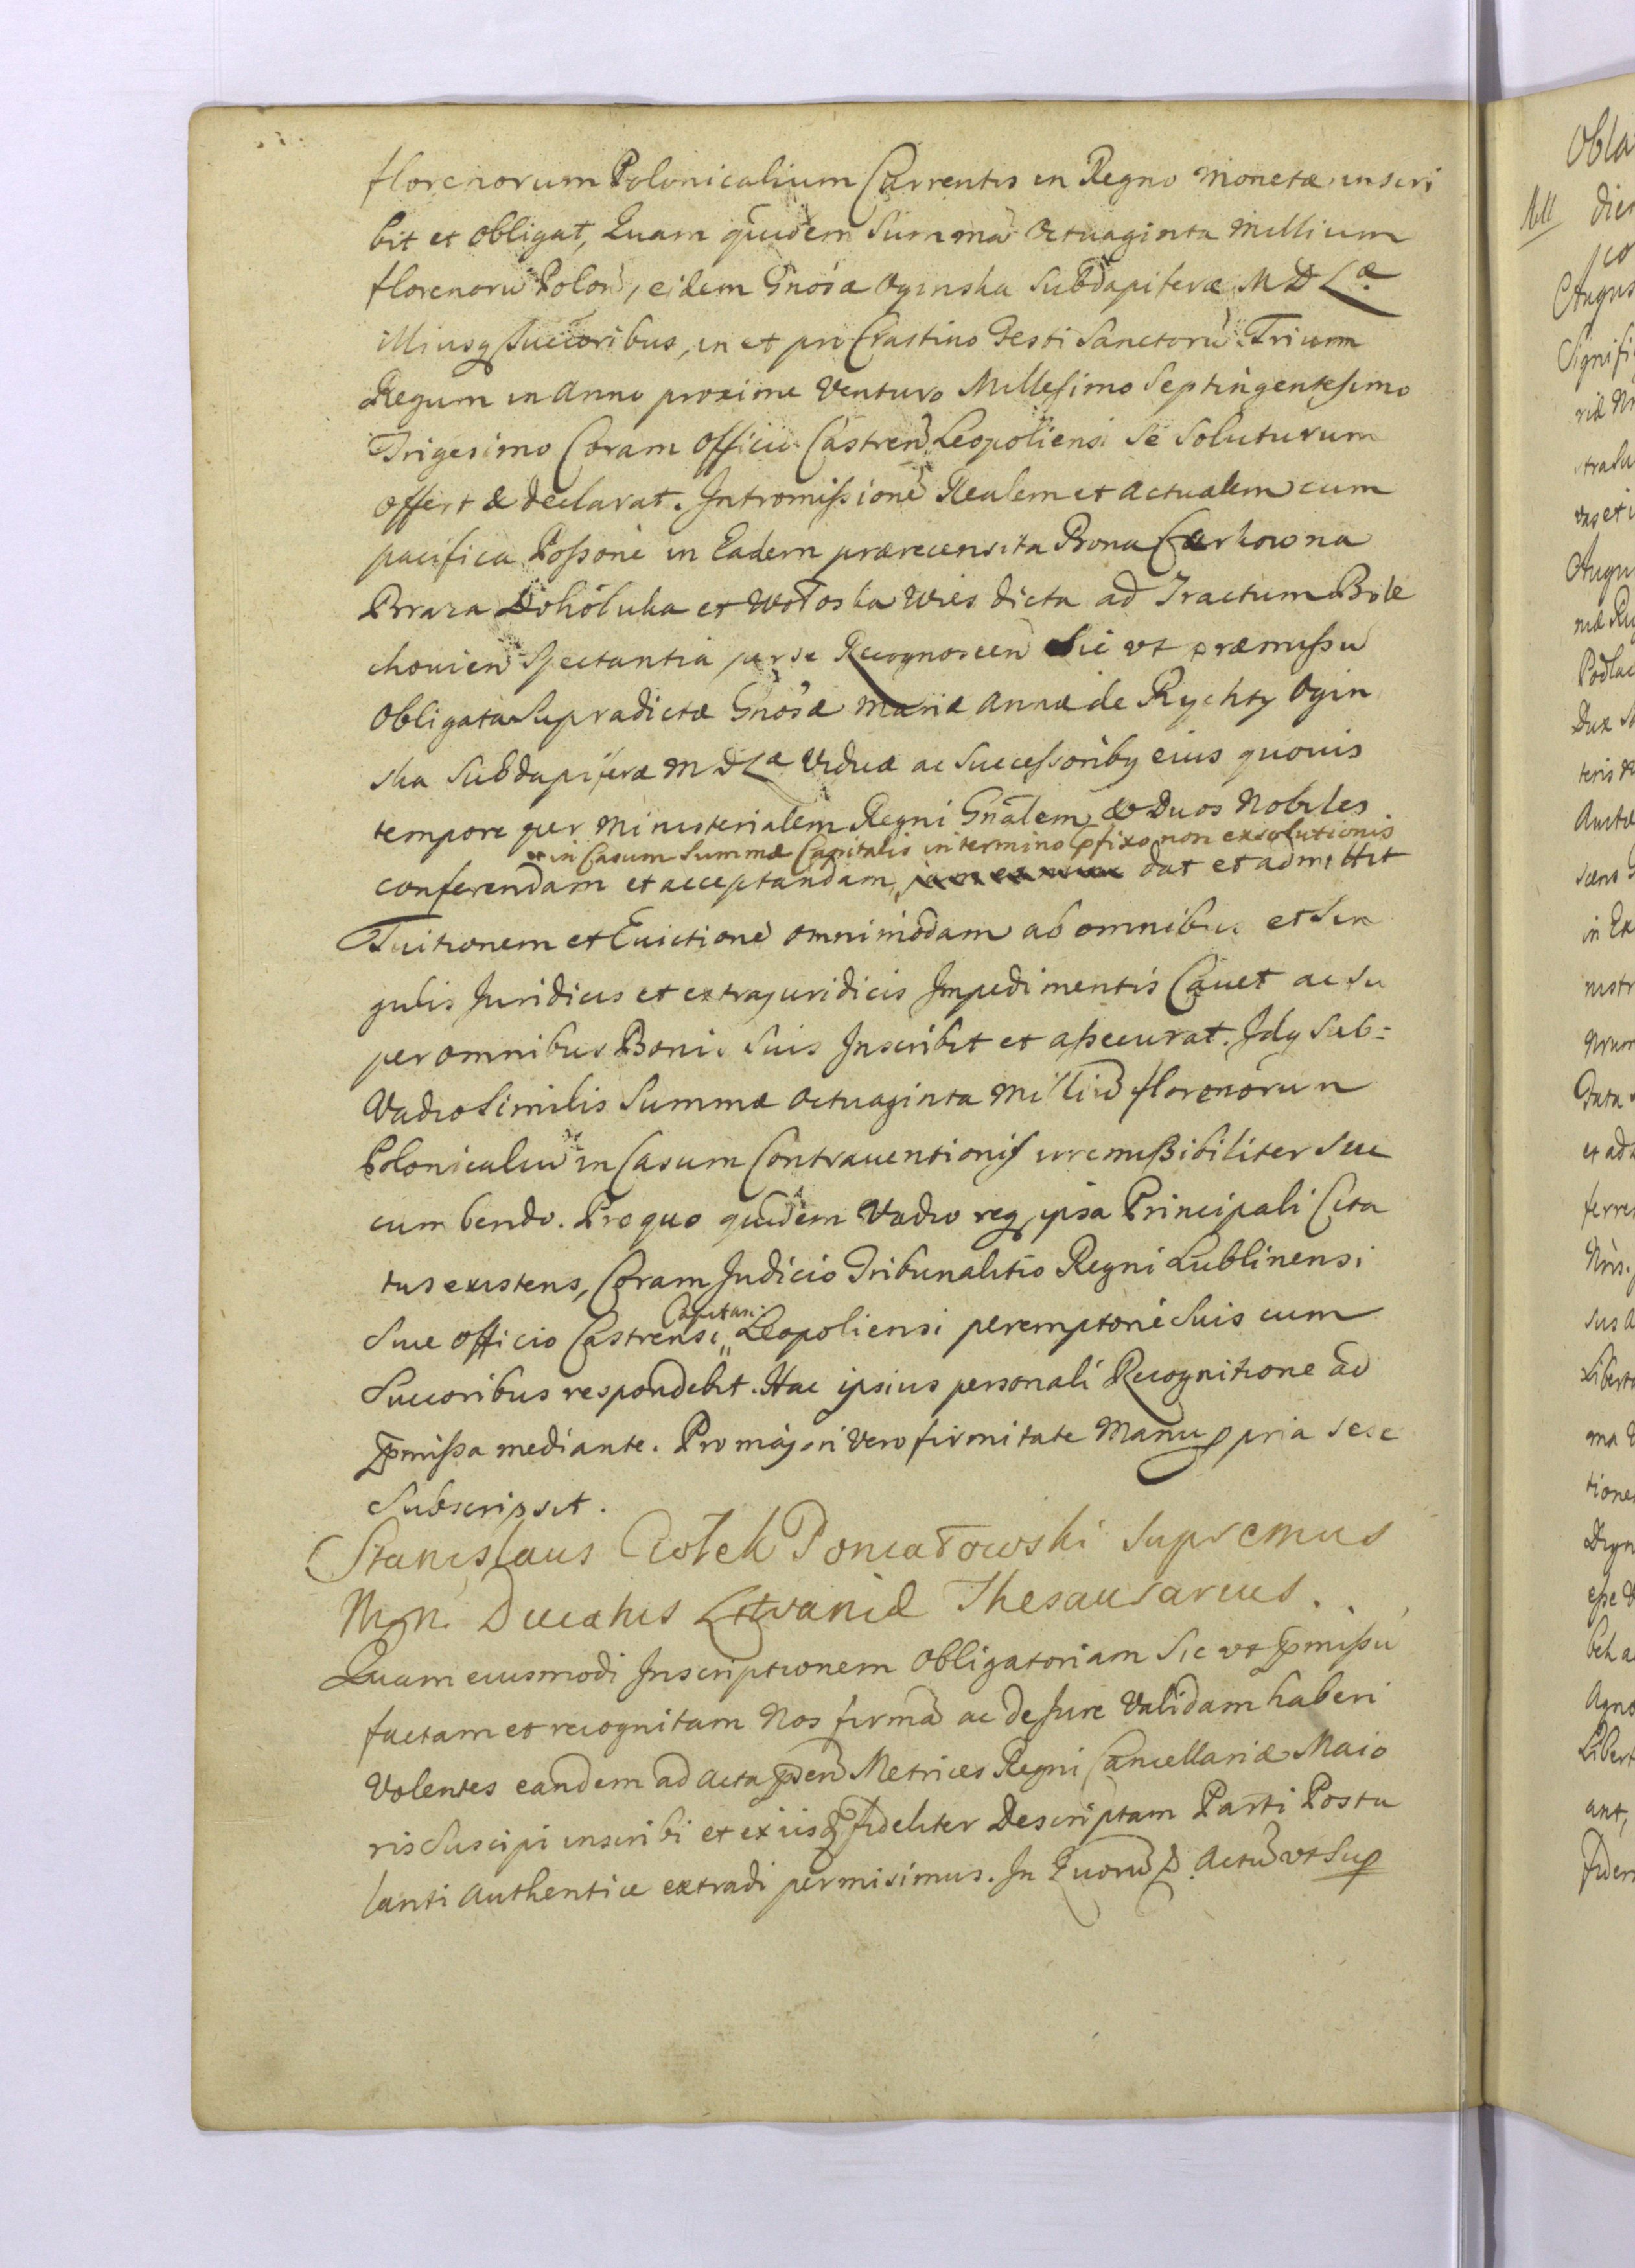 florenorum Polonicalium Currentis in Regno Monetæ inscri
bit et obligat, Quam quidem Summã Octuaginta Millium
florenorũ Polon̄, eidem Gnosæ Oginska Subdapiferæ M D Læ
illiusq Succoribus, in et pro Crastino Festi Sanctorũ Trium
Regum in Anno proxime Venturo Millesimo Septingentesimo
Trigesimo Coram Officio Castren̄ Leopoliensi se Soluturum
offert & declarat. Intromissionẽ Realem et actualem cum
pacifica Possone in Eadem prærecensita Bona Cerkowna
Braza Dohołuka et Wołoska Wies dicta ad Tractum Bole
chovien̄ Spectantia per se Recognoscen̄ Sic vt præmissũ
Obligata Supradictæ Gnosæ Mariæ Annæ de Rychty Ogin
ska Subdapiferæ M D Læ Viduæ ac Successoribq eius quovis
tempore per Ministerialem Regni Gnãlem & Duos Nobiles
in Casum Summæ Capitalis in termino pfixo non exsolutionis
conferendam et acceptandam, dat et admittit
Tuitionem et Evictionẽ omnimodam ab omnibus et Sin
gulis Juridicis et extrajuridicis Impedimentis Cavet ac Su
per omnibus Bonis Suis Inscribit et assecurat. Idq Sub=
Vadio Similis Summæ Octuaginta Milliũ florenorum
Polonicaliũ in Casum Contraventionis irremissibiliter Suc
cumbendo. Pro quo quidem Vadio req ipsa Principali Cita
tus existens, Coram Judicio Tribunalitio Regni Lublinensi
Sive Officio Castrensi Capitan: Leopoliensi peremptorie Suis cum
Succoribus respondebit. Hac ipsius personali Recognitione ad
pmissa mediante. Pro majori Vero firmitate Manu ppria sese
Subscripsit.
Stanislaus Ciołek Poniatowski Supremus
M. n. Ducatus Litvaniæ Thesaurarius.
Quam eiusmodi Inscriptionem Obligatoriam Sic vt pmissũ
factam et recognitam Nos firmã ac de Jure Validam haberi
Volentes eandem ad Acta psen̄ Metrices Regni Cancellariæ Maio
ris Suscipi inscribi et ex iisq fideliter Descriptam Parti Postu
lanti Authentice extradi permisimus. In Quorũ F. Actũ vt Sup